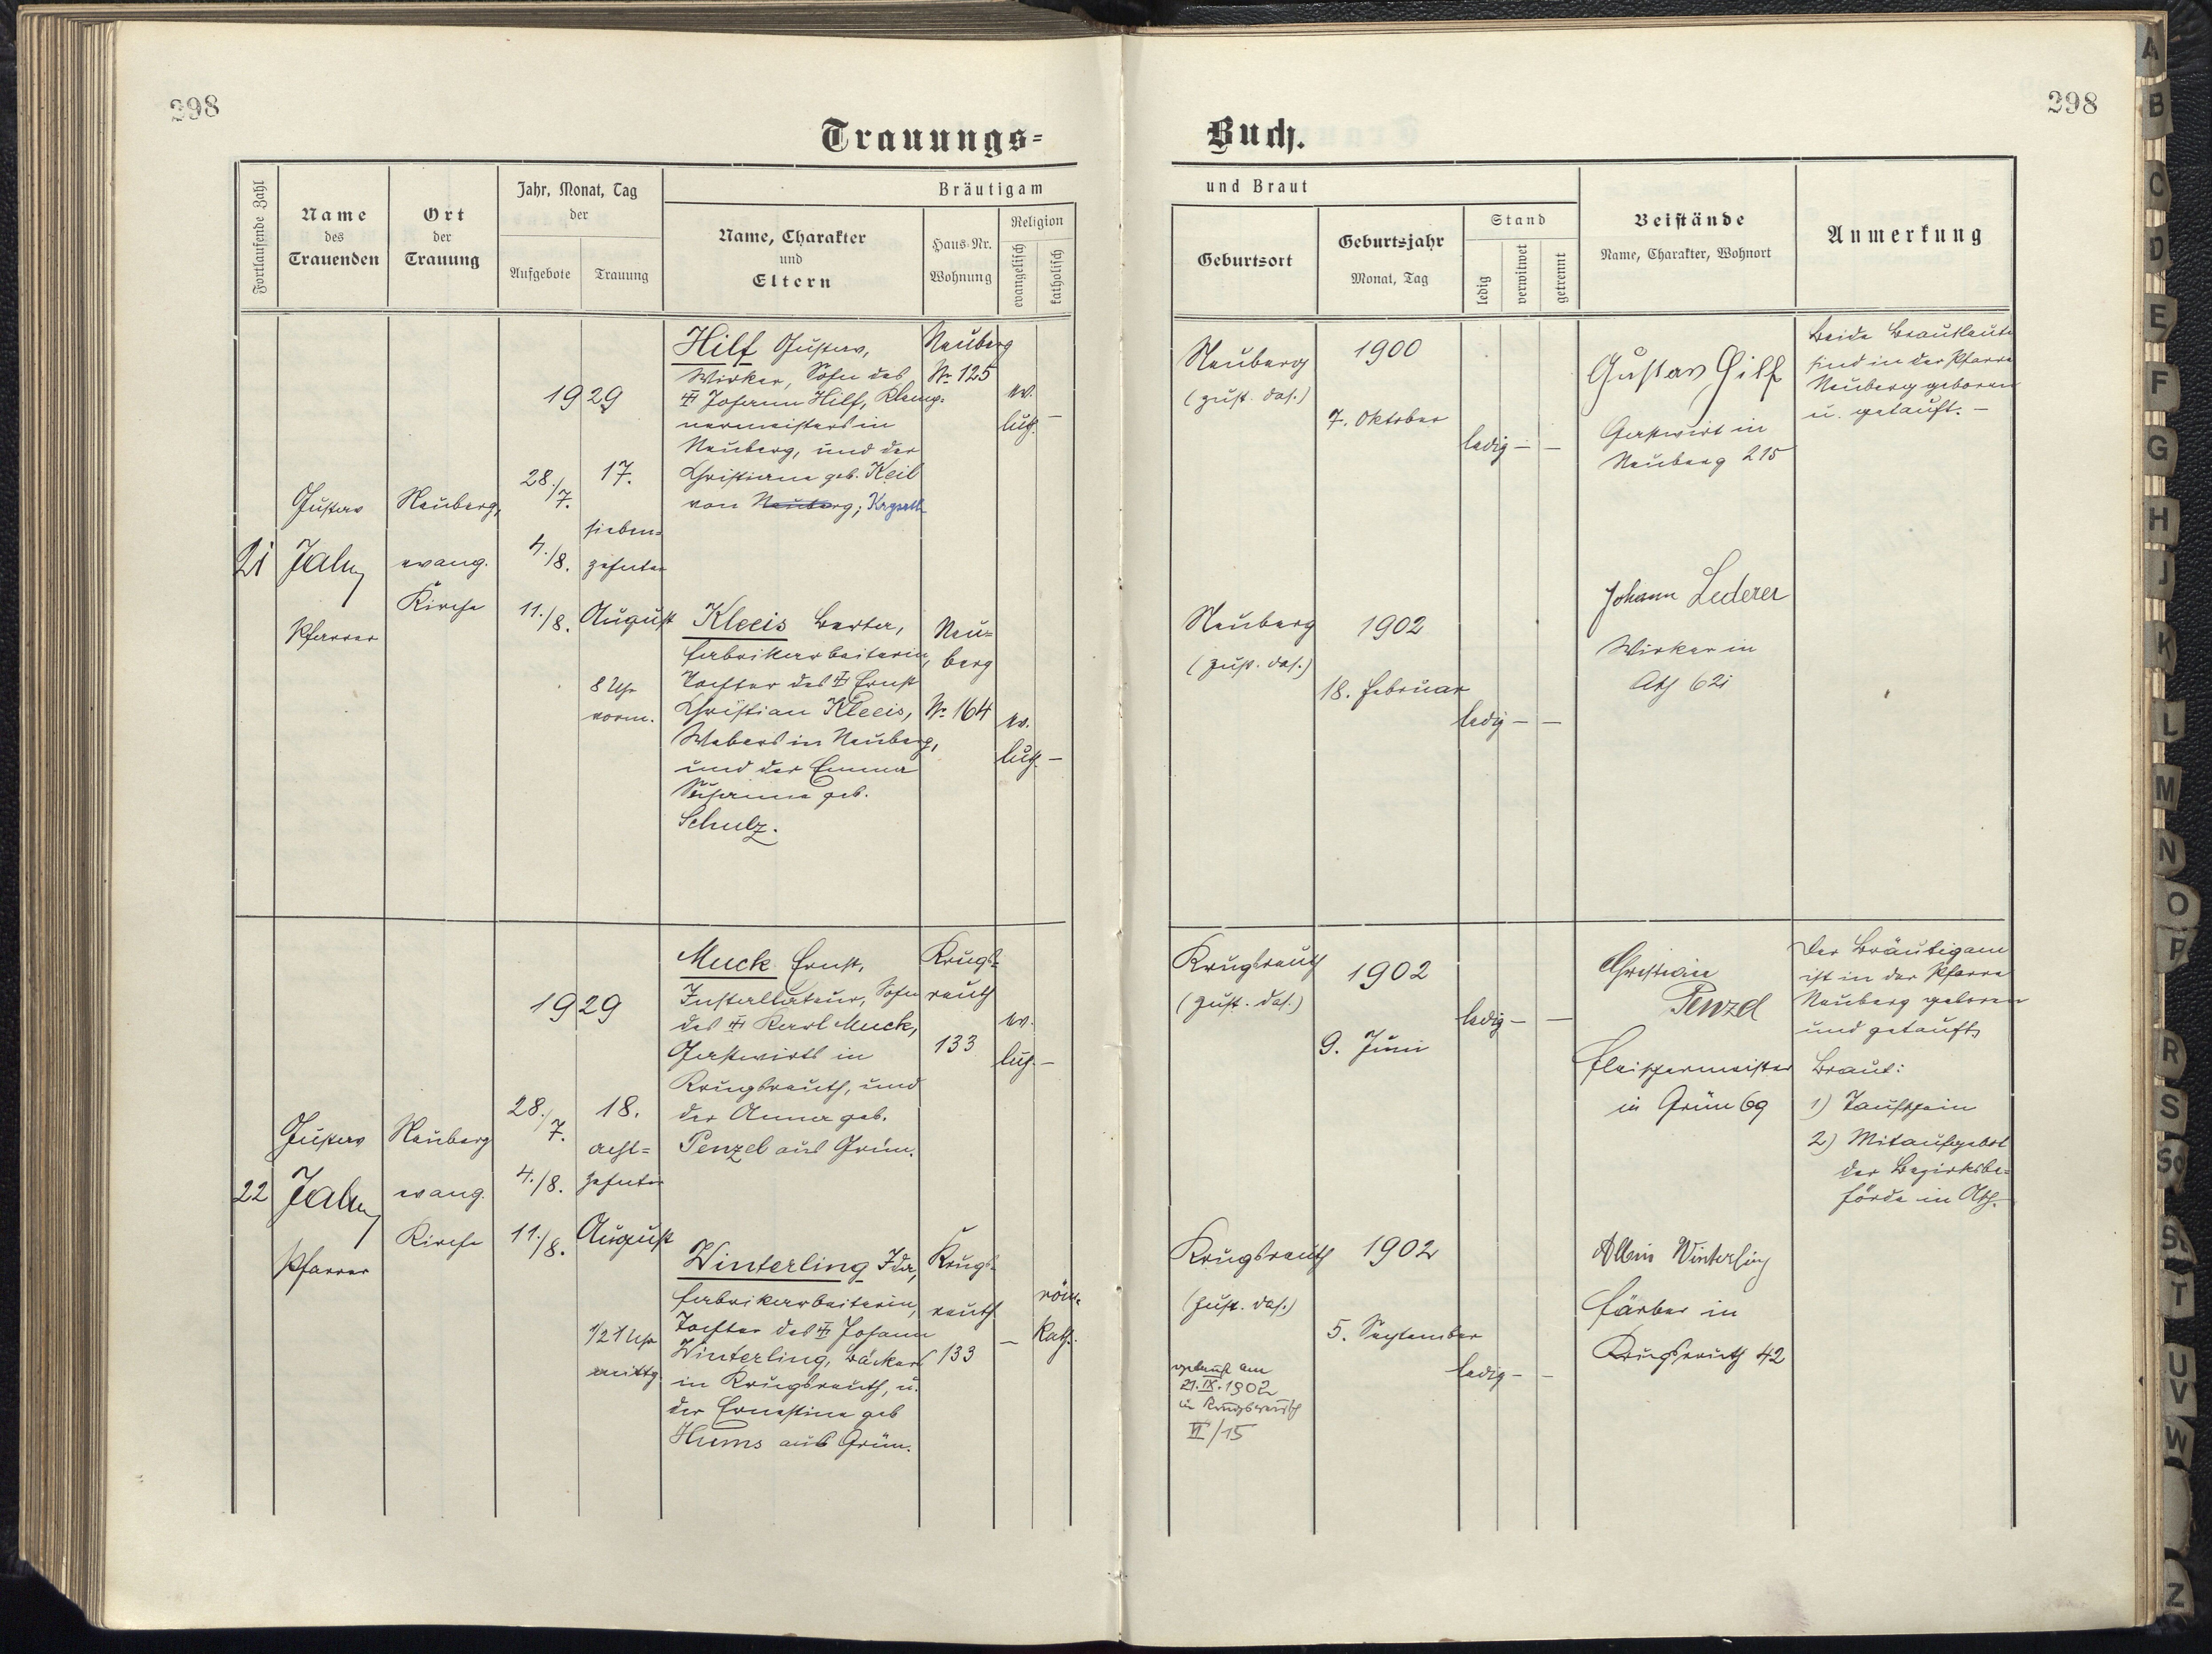 298
298
Trauungs=
Buch.
Fortlaufende Zahl
Name
des
Trauenden
Ort
der
Trauung
Jahr, Monat, Tag
der
Aufgebote
Trauung
Bräutigam
Name, Charakter
und
Eltern
Haus-Nr.
Wohnung
Religion
evangelisch
katholisch
und Braut
Geburtsort
Geburtsjahr
Monat, Tag
Stand
ledig
verwitwet
getrennt
Beistände
Name, Charakter, Wohnort
Anmerkung
21
Gustav
Jahn
Pfarrer
Neuberg,
evang.
Kirche
1929
28./7.
4./8.
11./8.
17.
sieben=
zehnter
August
8 Uhr
vorm.
Hilf Gustav,
Wirker, Sohn des
Johann Hilf, Klemp=
nermeisters in
Neuberg, und der
Christiane geb. Keil
von Neuberg;
Neuberg
Nr. 125
ev.
luth. –
Neuberg
(zust. das.)
1900
7. Oktober
ledig – –
Gustav Hilf
Gastwirt in
Neuberg 215
Beide Brautleute
sind in der Pfarre
Neuberg geboren
u. getauft. –
Kleeis Berta,
Fabrikarbeiterin,
Tochter des Ernst
Christian Kleeis,
Webers in Neuberg,
und der Emma
Susanna geb.
Schulz.
Neu=
berg
Nr. 164
ev.
luth. –
Neuberg
(zust. das.)
1902
18. Februar
ledig – –
Johann Lederer
Wirker in
Asch 621
22
Gustav
Jahn
Pfarrer
Neuberg
evang.
Kirche
1929
28./7.
4./8.
11./8.
18.
acht=
zehnter
August
1/2 1 Uhr
mittg.
Muck Ernst,
Installateur, Sohn
des Karl Muck,
Gastwirts in
Krugsreuth, und
der Anna geb.
Penzel aus Grün.
Krugs=
reuth
133
ev.
luth. –
Krugsreuth
(zust. das.)
1902
9. Juni
ledig – –
Christian
Penzel
Fleischermeister
in Grün 69
Der Bräutigam
ist in der Pfarre
Neuberg geboren
und getauft
Braut:
1) Taufschein
2) Mitaufgebot
der Bezirksbe=
hörde in Asch.
Winterling Ida,
Fabrikarbeiterin,
Tochter des Johann
Winterling, Bäckers
in Krugsreuth, u.
der Ernestine geb
Hums aus Grün.
Krugs=
reuth
133
–
röm.
kath.
Krugsreuth
(zust. das.)
getauft am
21.IX.1902
in Krugsreuth
VI/15
1902
5. September
ledig – –
Albin Winterling
Färber in
Krugsreuth 42
A
B
C
D
E
F
G
H
J
K
L
M
N
O
P
R
S
Sch
St
T
U
V
W
Z